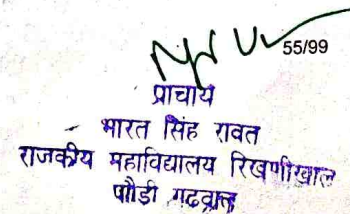 55/99
प्राचार्य
भारत सिंह रावत
राजकीय महाविद्यालय रिखणीखाल
पौडी गढवाल